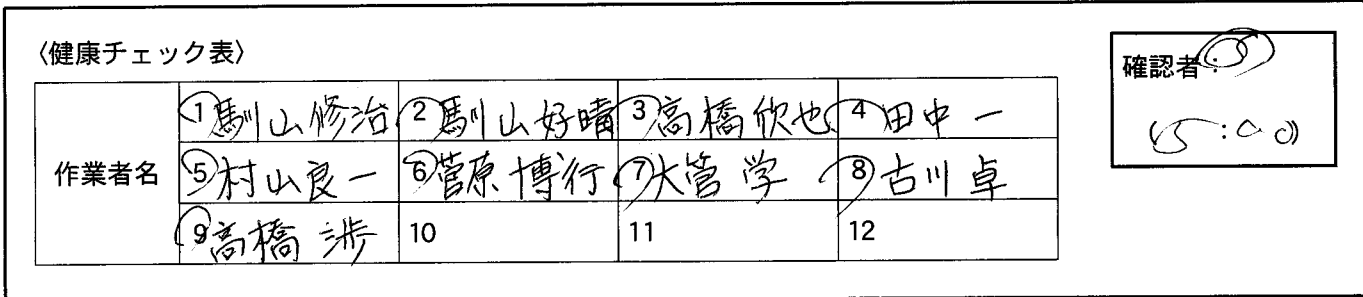 〈健康チェック表〉
確認者:
作業者名
①馴山修治 ②馴山好晴 ③高橋欣也 ④田中一
⑤村山良一 ⑥菅原博行 ⑦大管学 ⑧古川卓
⑨高橋渉 10 11 12